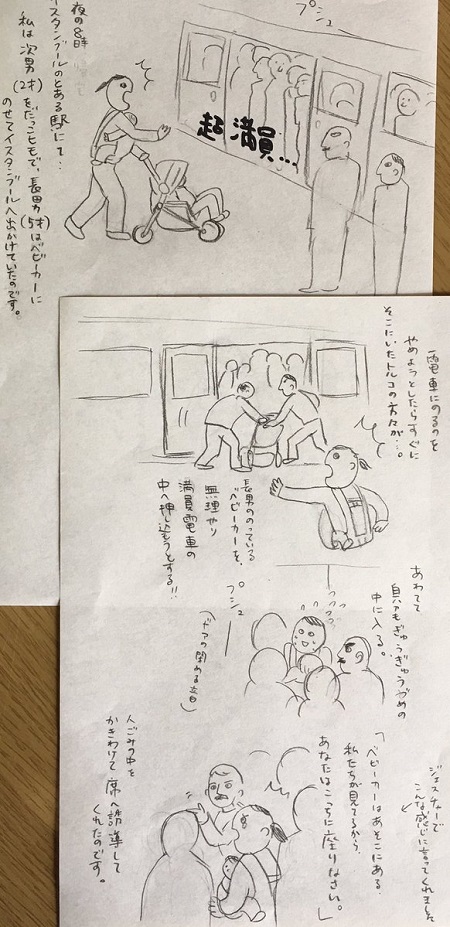 プシュ
夜の8時
イスタンブールのとある駅にて…
私は次男(2才)をだっこヒモで、長男(5才)はベビーカーに
のせてイスタンブールへ出かけていたのです。
超満員…
電車にのるのを
やめようとしたらすぐに
そこにいたトルコの方々が…。
長男ののっている
ベビーカーを、
無理やり
満員電車の
中へ押し込もうとする!!
あわてて
私もぎゅうぎゅうづめの
中に入る。
プシュー
(ドアの閉める音)
ジェスチャーで
こんな感じに言ってくれました
「ベビーカーはあそこにある、
私たちが見てるから、
あなたはこっちに座りなさい。」
人ごみの中を
かきわけて席へ誘導して
くれたのです。